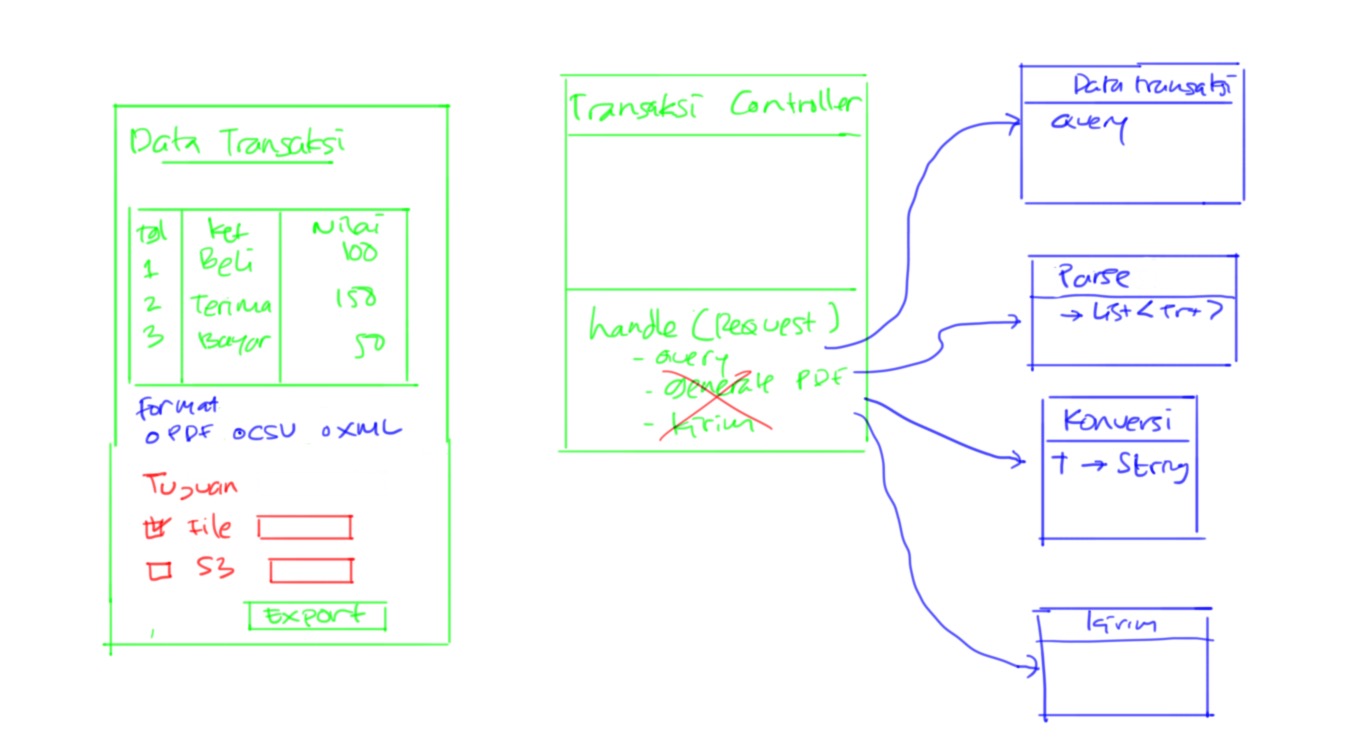 Data Transaksi
tgl ket Nilai
1 Beli 100
2 Terima 150
3 Bayar 50
Format
PDF CSV XML
Tujuan
File
S3
Export
Transaksi Controller
handle (Request)
- query
- generate PDF
- kirim
Data transaksi
query
Parse
→ List<trx>
Konversi
T → String
kirim